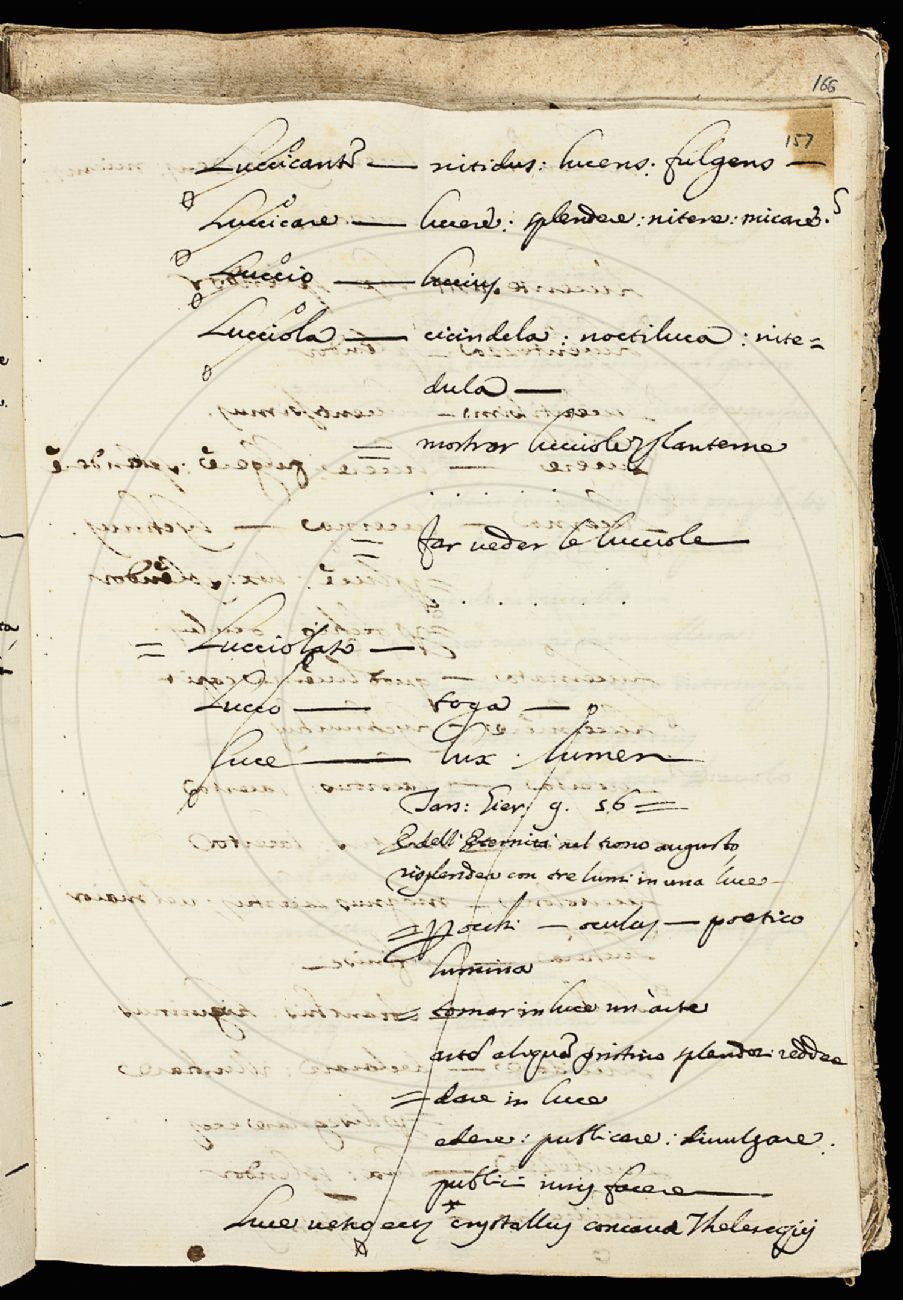 166
157
Luccicante — nitidus: lucens: fulgens —
Luccicare — lucere: splendere: nitere: micare.
Luccio — lucius
Lucciola — cicindela: noctiluca: nite=
dula —
= mostrar lucciole lanterne
. . . . . . .
= far veder le lucciole —
. . . . .
= Lucciolato —
Lucco — toga —
Luce — lux. lumen
Tans: Eier. 9. 56 =
E dell' Eternità nel trono augusto
risplendea con tre lumi in una luce —
= occhi — oculus — poetico
lumina
= tornar in luce un' arte
splendori reddere
= dare in luce
edere: publicare: divulgare.
publici facere —
Luce crystallus concava